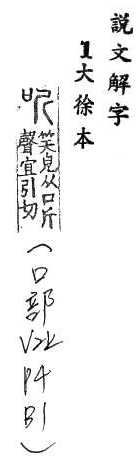 說文解字
1大徐本
听
笑皃从口斤
聲宜引切
(口部
V2上
P4
B1)